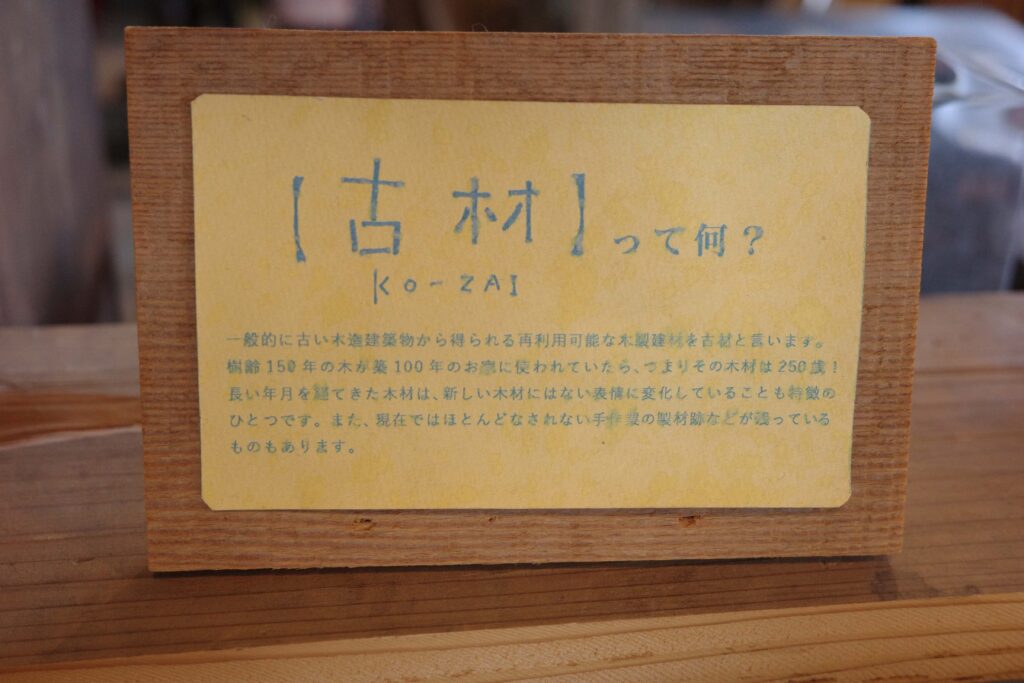 【古材】って何？
KO-ZAI
一般的に古い木造建築物から得られる再利用可能な木製建材を古材と言います。
樹齢150年の木が築100年のお家に使われていたら、つまりその木材は250歳！
長い年月を経てきた木材は、新しい木材にはない表情に変化していることも特徴の
ひとつです。また、現在ではほとんどなされない手作業の製材跡などが残っている
ものもあります。